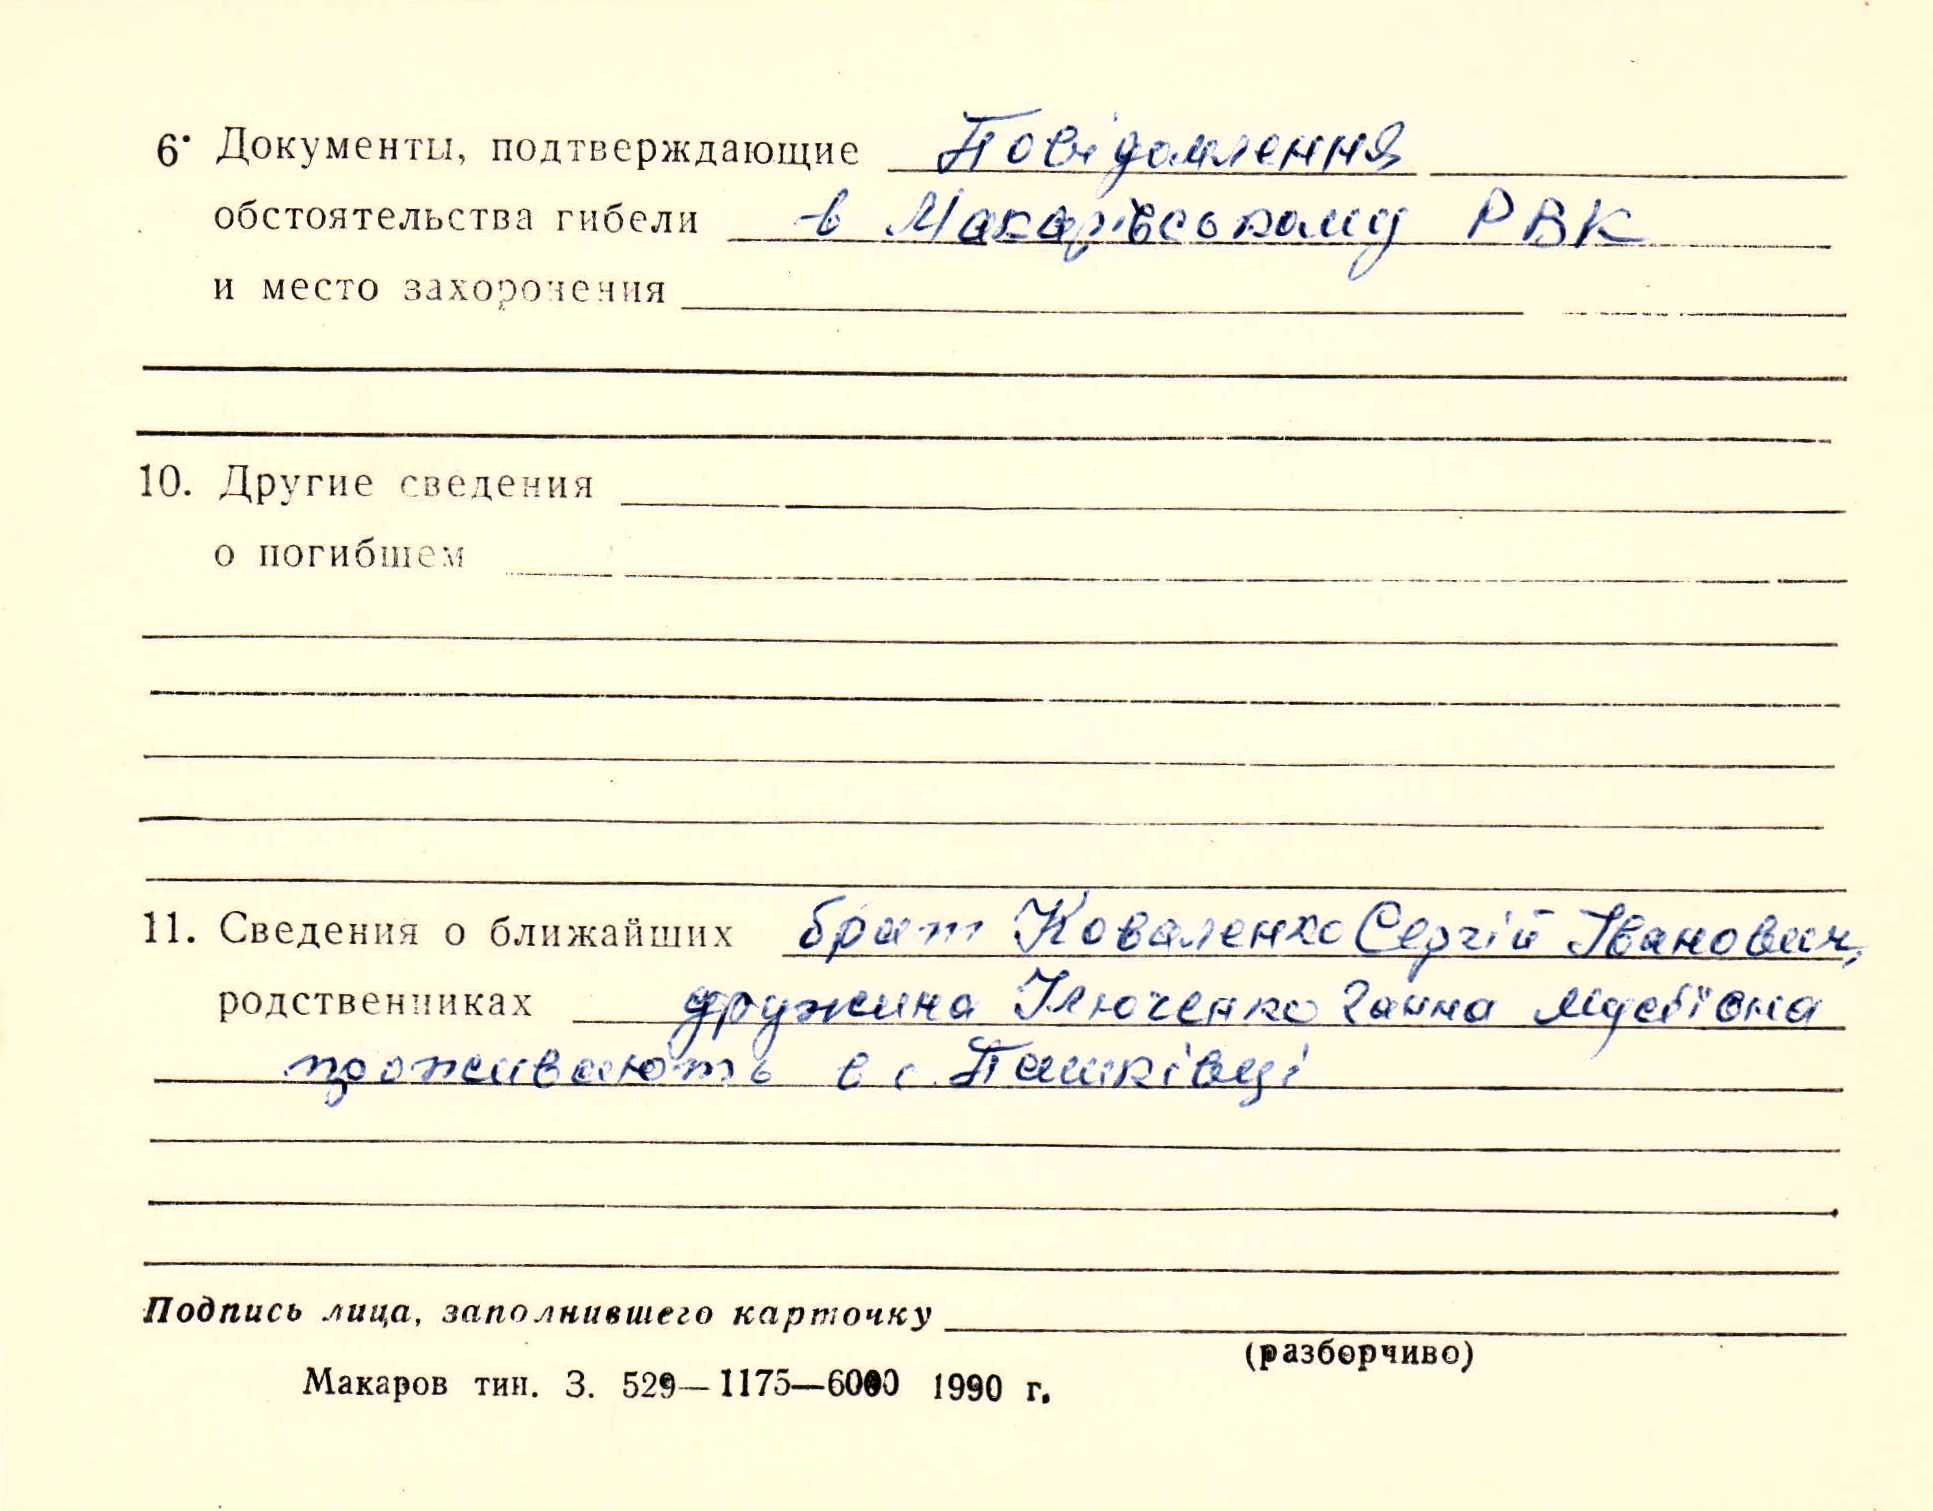 6. Документы, подтверждающие Повідомлення
обстоятельства гибели в Макарівському РВК
и место захоронения
10. Другие сведения
о погибшем
11. Сведения о ближайших брат Коваленко Сергій Іванович,
родственниках дружина Ганна Мусіївна
проживають в с. Пашківці
Подпись лица, заполнившего карточку
(разборчиво)
Макаров тип. З. 529—1175—6000 1990 г.